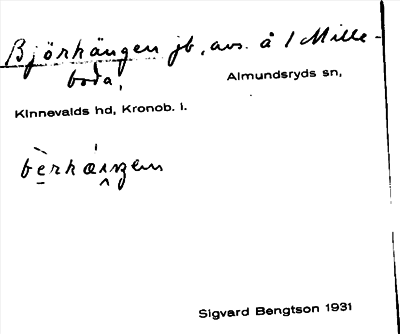 Björhängen jb, avs. å 1 Mille-
boda,
Almundsryds sn,
Kinnevalds hd, Kronob. l.
Sigvard Bengtson 1931